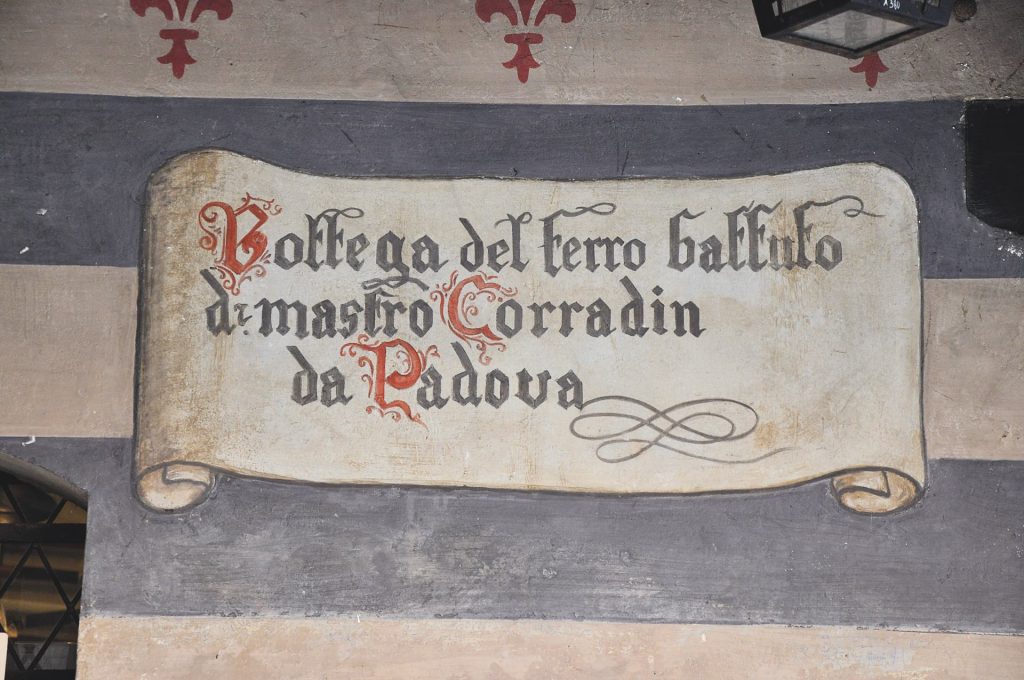 Bottega del ferro battuto
di mastro Corradin
da Padova